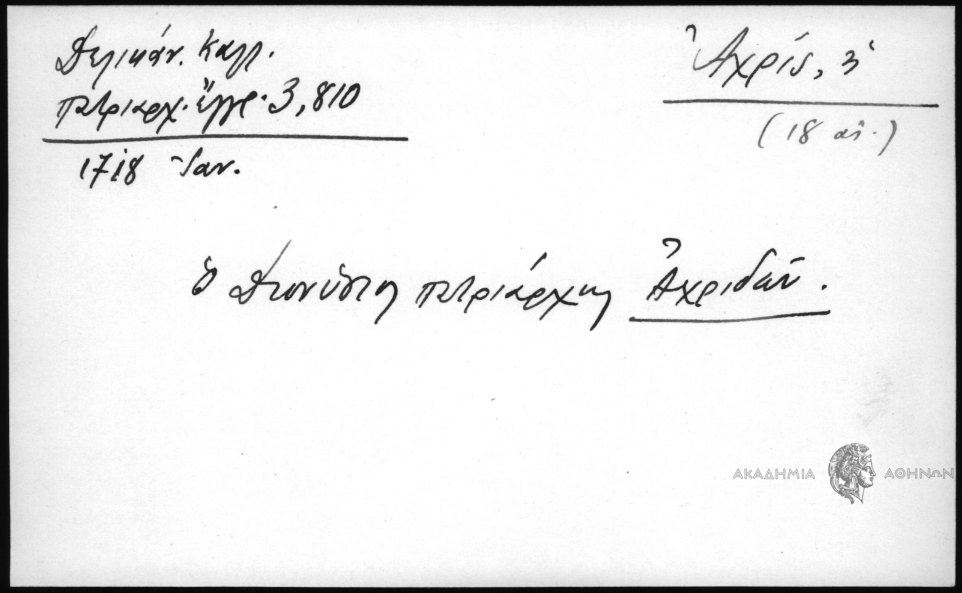 Δελικάν. Καλλ.
Πατριαρχ. Ἔγγρ. 3, 810
1718 Ἰαν.
Ἀχρίς, ἡ
(18 αἰ.)
ὁ Διονύσιος πατριάρχης Ἀχριδῶν.
ΑΚΑΔΗΜΙΑ ΑΘΗΝΩΝ